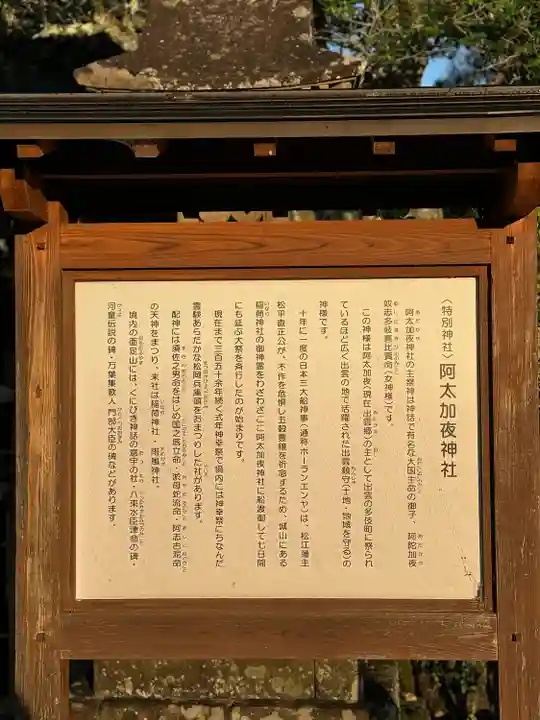 〈特別神社〉阿太加夜神社
阿太加夜神社の主祭神は神話で有名な大国主命の御子、阿陀加夜
奴志多岐喜比賣命(女神様)です。
この神様は阿太加夜(現在 出雲郷)の主として出雲の多伎町に祭られ
ているほど広く出雲の地で活躍された出雲鎮守(土地・地域を守る)の
神様です。
十年に一度の日本三大船神事(通称ホーランエンヤ)は、松江藩主
松平直正公が、不作を危惧し五穀豊穣を祈念するため、城山にある
稲荷神社の御神霊をわざわざここに阿太加夜神社に船渡御して七日間
にも延ぶ大祭を斉行したのが始まりです。
現在まで三百五十余年続く式年神幸祭で境内には神幸祭にちなんだ
霊験あらたかな松岡兵庫頭をおまつりした社があります。
配神には須佐之男命をはじめ国之底立命・淤母蛇流命・阿志古泥命
の天神をまつり、末社は稲荷神社・雨風神社。
境内の面足山には、くにびき神話の意宇の杜・八束水臣津命の碑・
河童伝説の碑・万葉集歌人 門部大臣の碑などがあります。